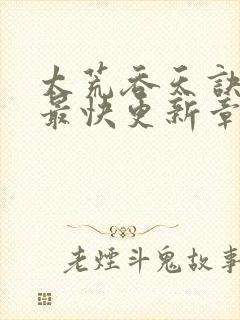 大荒吞天訣
最快更新章
老煙斗鬼故事